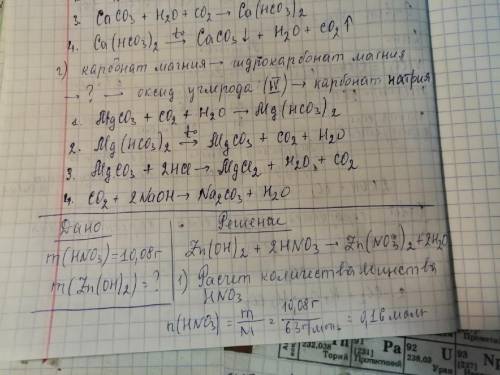 3. CaCO3 + H2O + CO2 → Ca(HCO3)2
4. Ca(HCO3)2 t°→ CaCO3↓ + H2O + CO2↑
г) карбонат магния → гидрокарбонат магния
→ ? → оксид углерода (IV) → карбонат натрия
1. MgCO3 + CO2 + H2O → Mg(HCO3)2
2. Mg(HCO3)2 t°→ MgCO3 + CO2 + H2O
3. MgCO3 + 2HCl → MgCl2 + H2O + CO2
4. CO2 + 2NaOH → Na2CO3 + H2O
Дано
m(HNO3)=10,08г
m(Zn(OH)2)=?
Решение
Zn(OH)2 + 2HNO3 → Zn(NO3)2+2H2O
1) Расчет количества вещества
HNO3
n(HNO3) = m/M = 10,08г/63г/моль = 0,16 моль
232,038
Торий
Pa 91
[231]
Протактиний
92 U
238,03
Уран
93
[237]